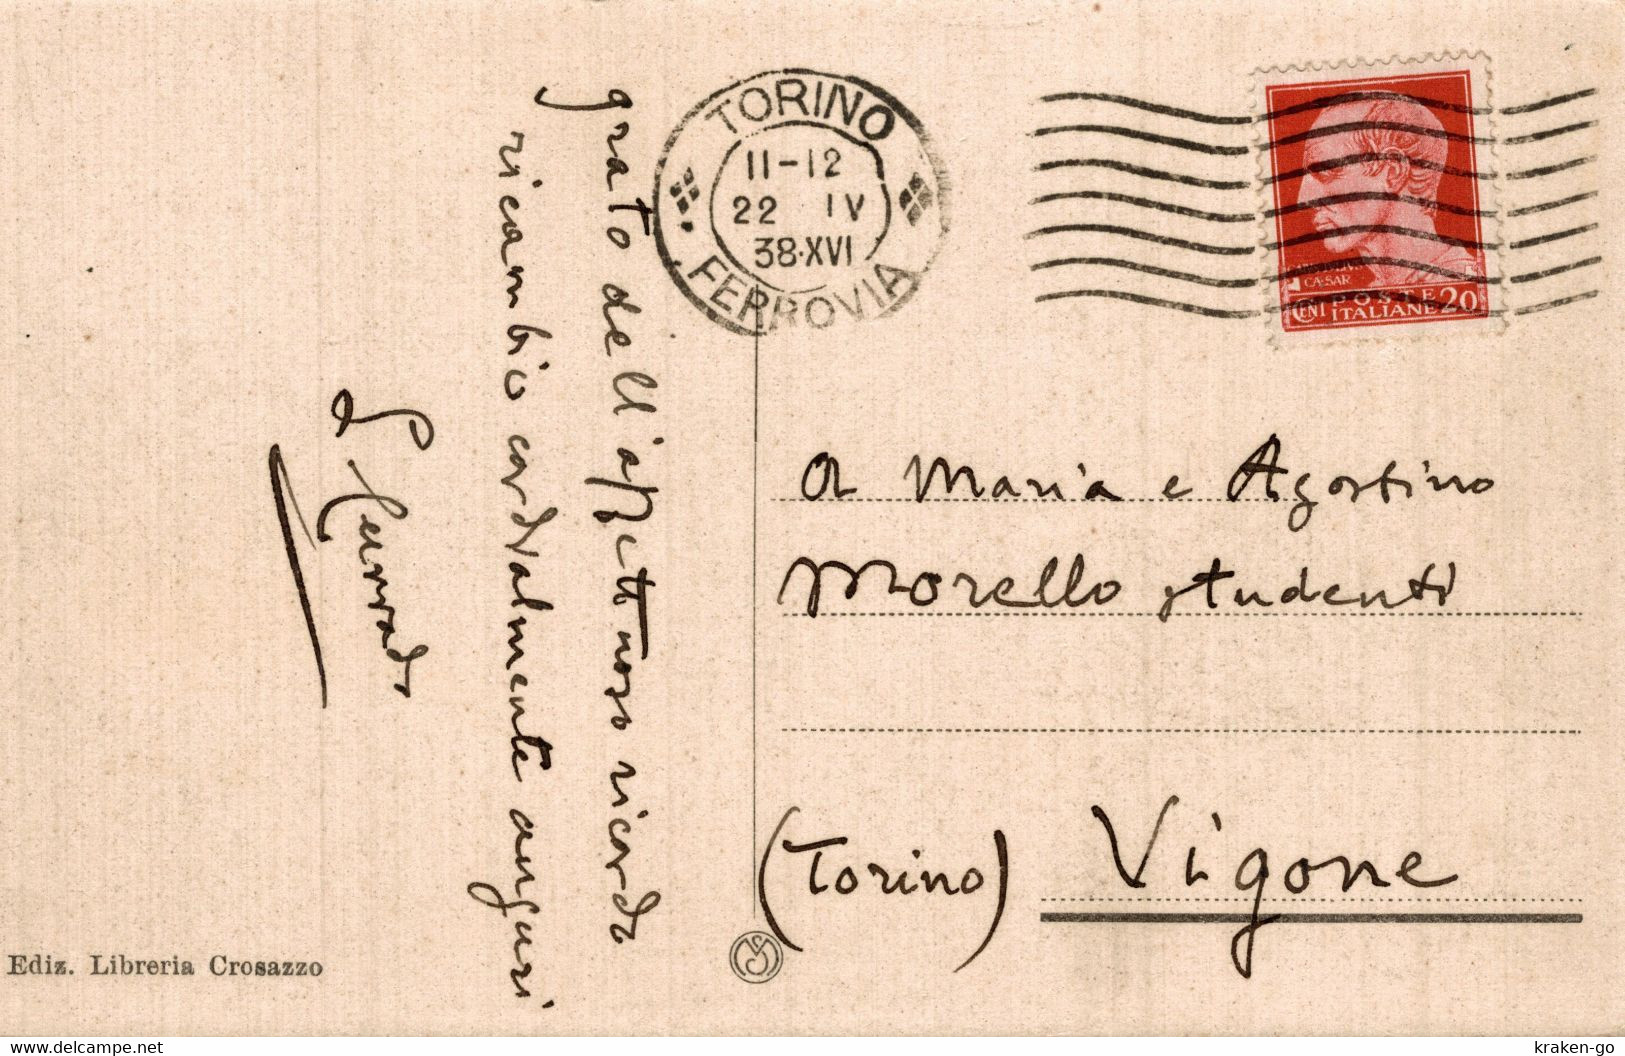 TORINO
11-12
22 IV
38·XVI
FERROVIA
CAESAR
CENT POSTE 20
ITALIANE
grato dell'affettuoso ricordo
ricambio cordialmente auguri
A Maria e Agostino
Morello studenti
(Torino) Vigone
Ediz. Libreria Crosazzo
kraken-go on www.delcampe.net
kraken-go